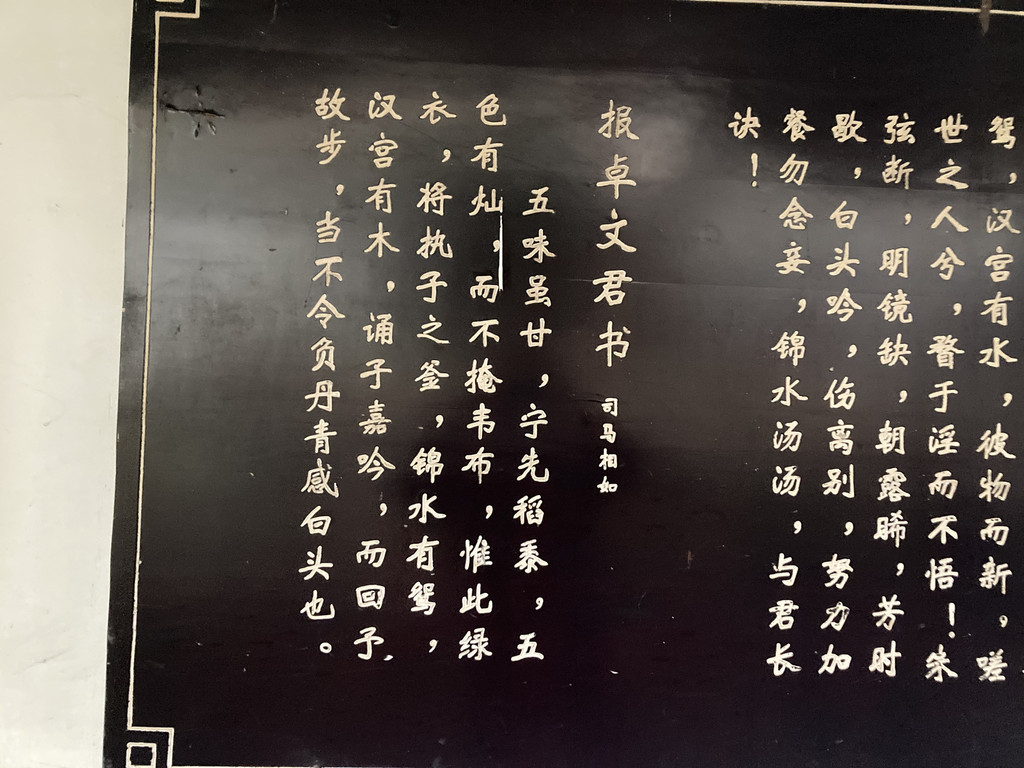 鸳，汉宫有水，彼物而新，嗟
世之人兮，瞀于淫而不悟！朱
弦断，明镜缺，朝露晞，芳时
歇，白头吟，伤离别，努力加
餐勿念妾，锦水汤汤，与君长
诀！
报卓文君书 司马相如
五味虽甘，宁先稻黍，五
色有灿，而不掩韦布，惟此绿
衣，将执子之釜，锦水有鸳，
汉宫有木，诵子嘉吟，而回予
故步，当不令负丹青感白头也。